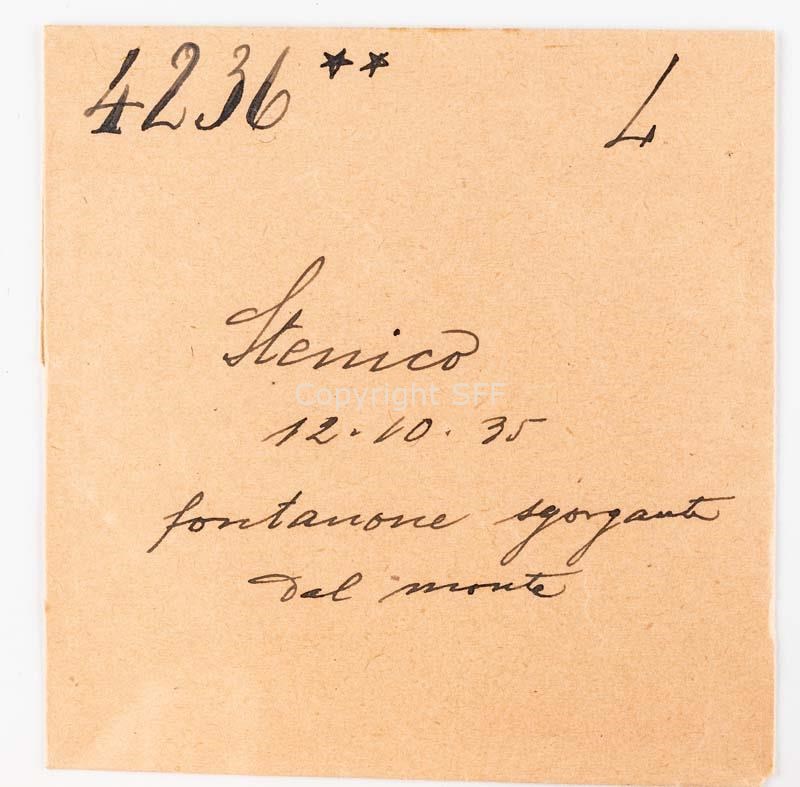 4236 ** L
Stenico
Copyright SFF
12.10.35
fontanone sgorgante
dal monte